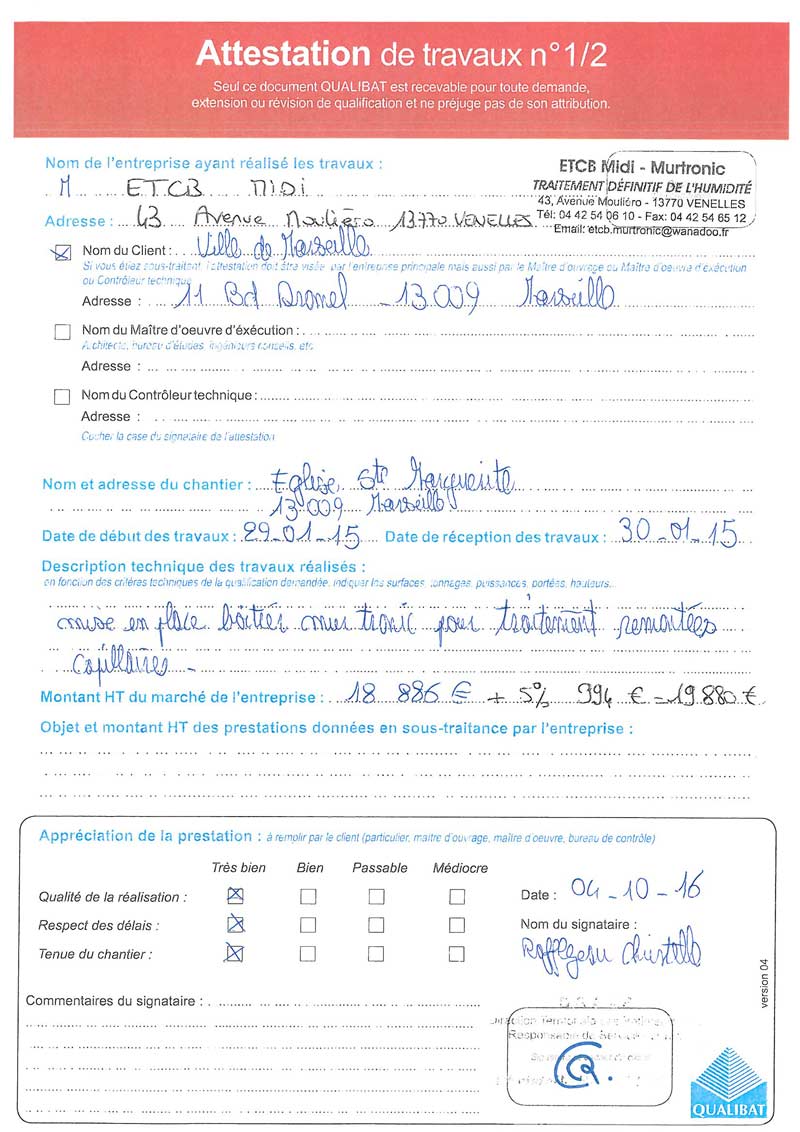 Attestation de travaux n°1/2
Seul ce document QUALIBAT est recevable pour toute demande,
extension ou révision de qualification et ne préjuge pas de son attribution.
Nom de l'entreprise ayant réalisé les travaux :
M ETCB MIDI
ETCB Midi - Murtronic
TRAITEMENT DÉFINITIF DE L'HUMIDITÉ
43, Avenue Mouliéro - 13770 VENELLES
Tél: 04 42 54 06 10 - Fax: 04 42 54 65 12
Email: etcb.murtronic@wanadoo.fr
Adresse : 43 Avenue Mouliéro 13770 VENELLES
Nom du Client : Ville de Marseille
Si vous étiez sous-traitant, l'attestation doit être visée par l'entreprise principale mais aussi par le Maître d'ouvrage ou Maître d'oeuvre d'exécution
ou Contrôleur technique
Adresse : 11 Bd Dromel - 13009 Marseille
Nom du Maître d'oeuvre d'éxécution :
Architecte, bureau d'études, ingénieurs conseils, etc.
Adresse :
Nom du Contrôleur technique :
Adresse :
Cocher la case du signataire de l'attestation
Nom et adresse du chantier : Eglise Ste Marguerite
13009 Marseille
Date de début des travaux : 29-01-15 Date de réception des travaux : 30-01-15
Description technique des travaux réalisés :
en fonction des critères techniques de la qualification demandée, indiquer les surfaces, tonnages, puissances, portées, hauteurs...
mise en place boîtier mur tronic pour traitement remontées
capillaires -
Montant HT du marché de l'entreprise : 18 886 € + 5% 994 € = 19 880 €
Objet et montant HT des prestations données en sous-traitance par l'entreprise :
Appréciation de la prestation : à remplir par le client (particulier, maitre d'ouvrage, maître d'oeuvre, bureau de contrôle)
Très bien Bien Passable Médiocre
Qualité de la réalisation :
Respect des délais :
Tenue du chantier :
Date : 04-10-16
Nom du signataire :
Commentaires du signataire :
Responsable de Service
version 04
QUALIBAT